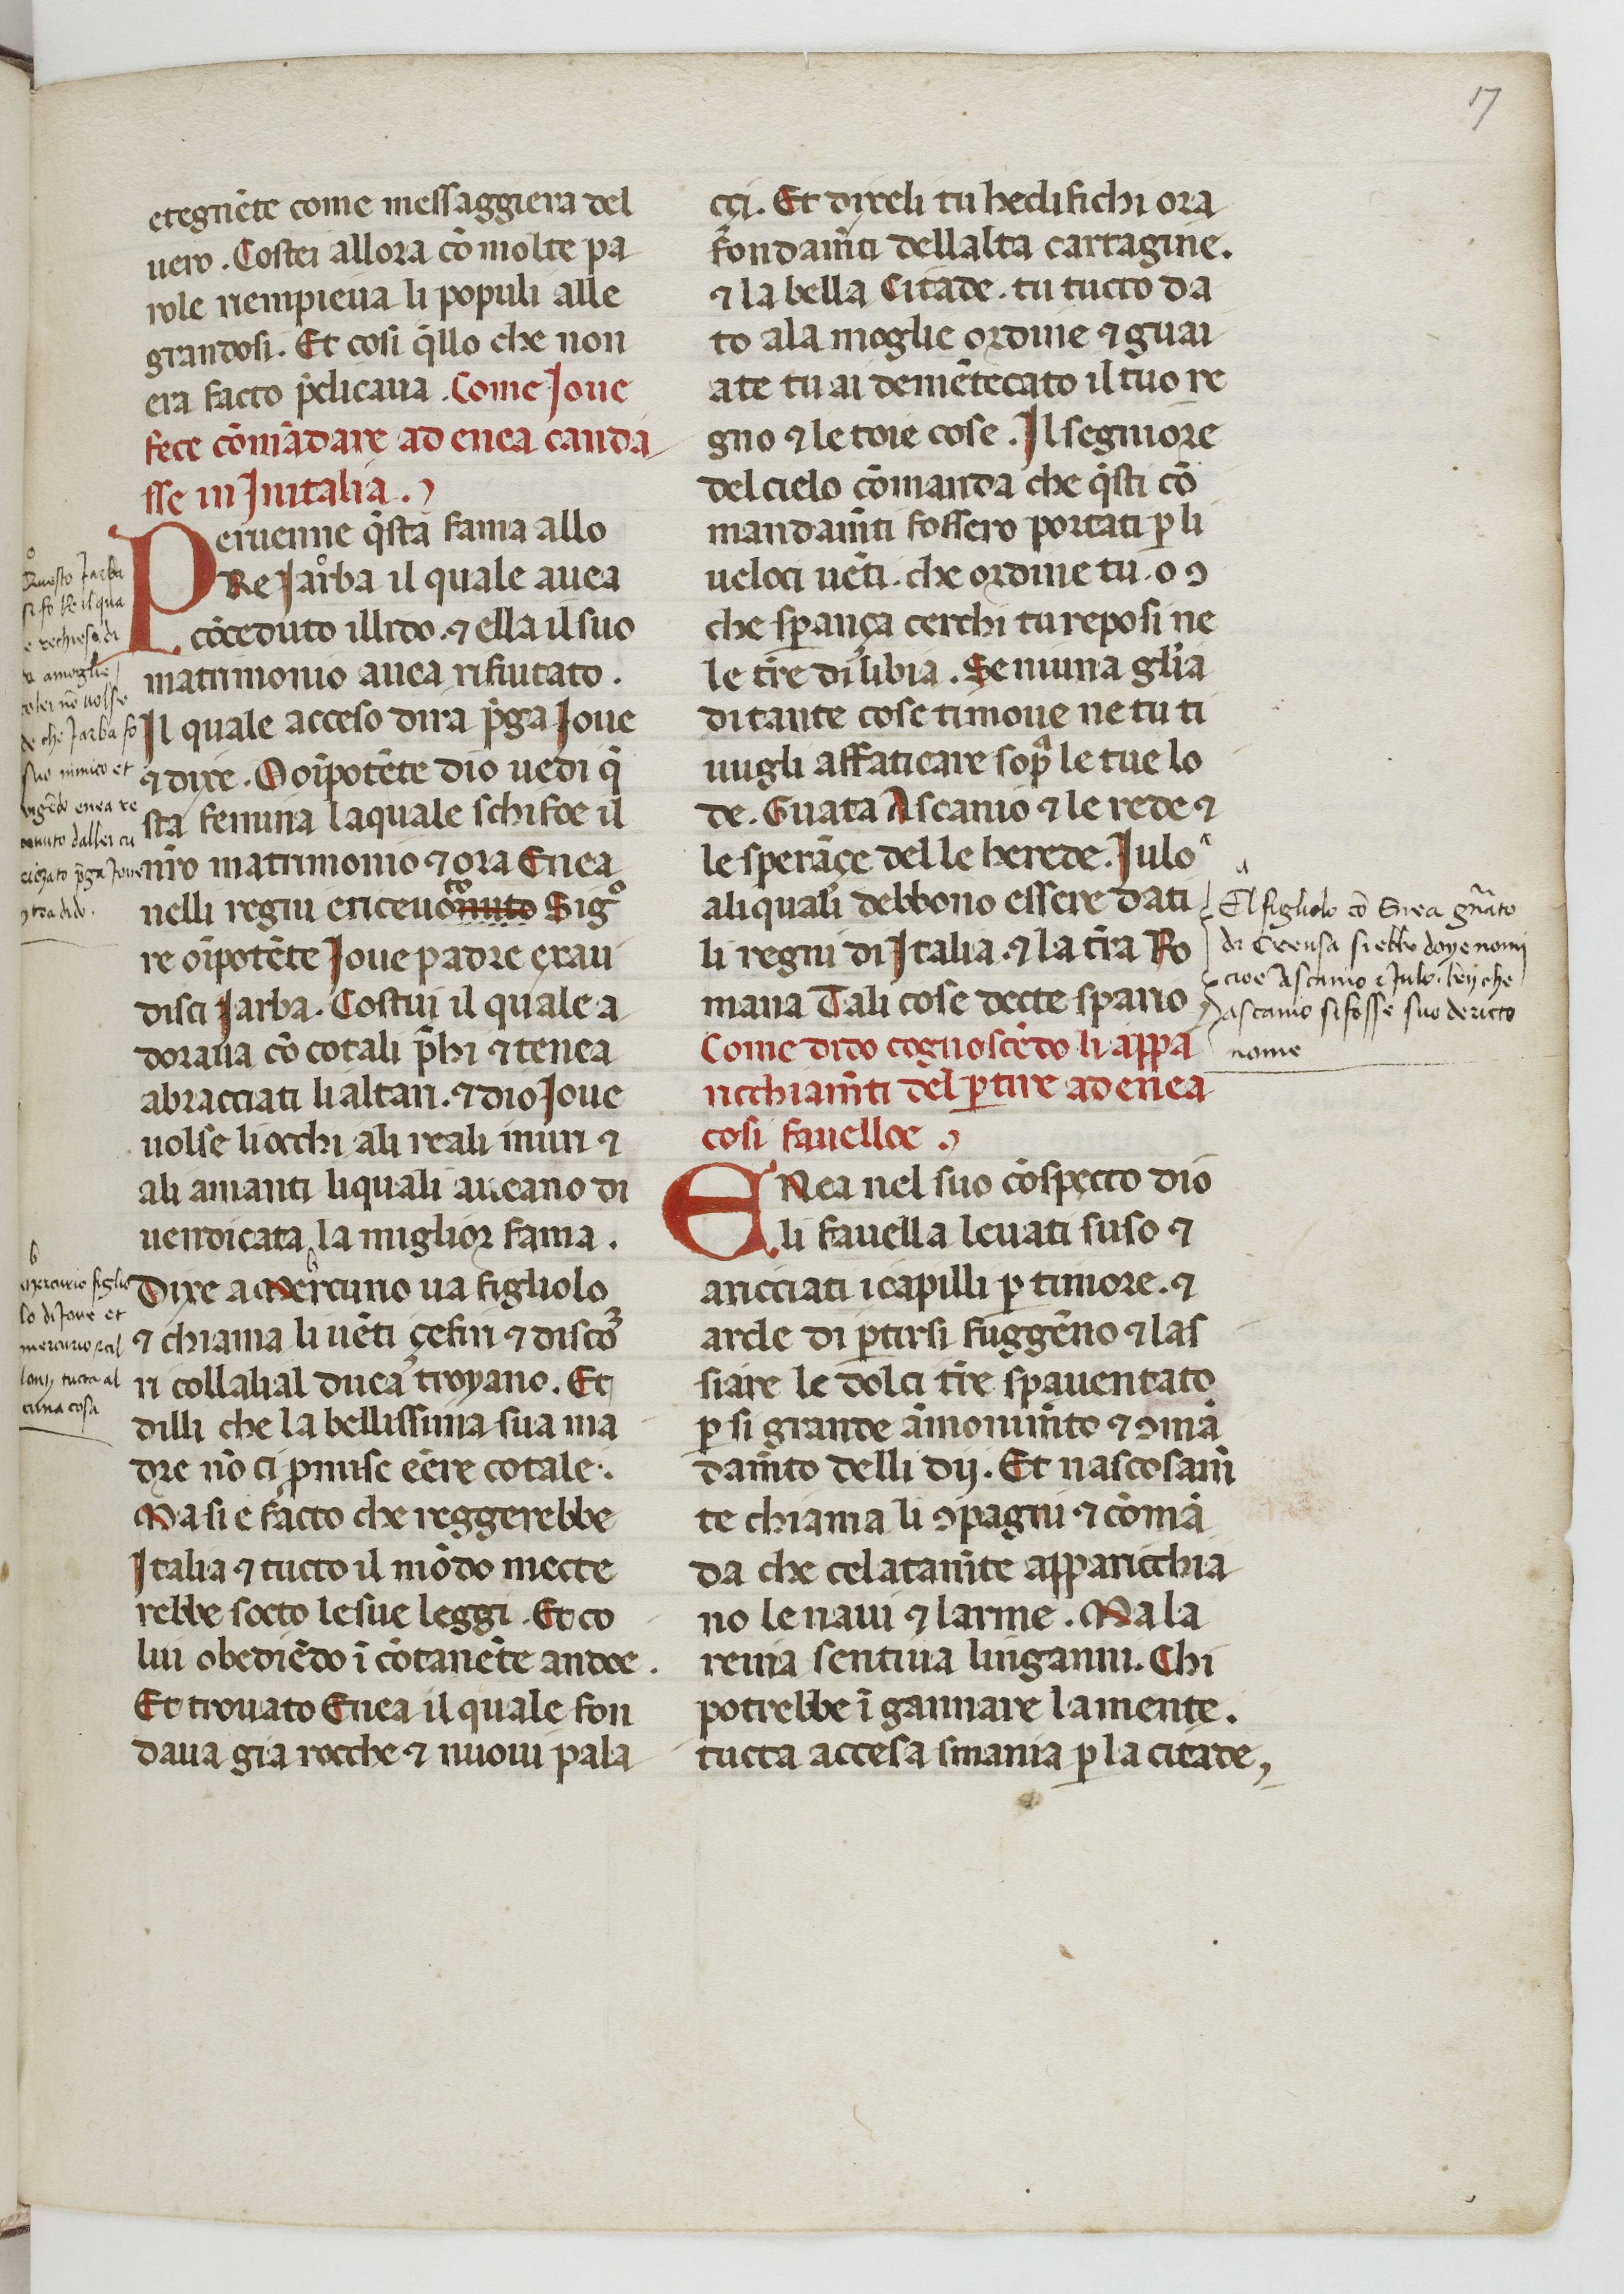 17
etegnēte come messaggiera del
uero. Costei allora cō molte pa
role riempieua li populi alle
grandosi. Et cosi q̄llo che non
era facto p̄dicaua. Come Joue
fece cōmādare ad enea canda
sse in Initalia.
Peruenne q̄sta fama allo
Re Jarba il quale auea
cōceduto illido. ⁊ ella il suo
matrimonio auea rifiutato.
Il quale acceso dira p̄ga Joue
⁊ dixe. O oīpotēte dio uedi q̄
sta femina laquale schifoe il
nr̄o matrimonio ⁊ ora Enea
nelli regni ericeuoto Sigo
re oīpotēte Joue padre exau
disci Jarba. Costui il quale a
doraua cō cotali p̄hi ⁊ tenea
abracciati li altari. ⁊ dio Joue
uolse li occhi ali reali muri ⁊
ali amanti liquali aueano di
uendicata la miglior fama.
Dixe a Mercurio ua figliolo
⁊ chiama li uēti çefiri ⁊ disco
ri collalial duca troyano. Et
dilli che la bellissima sua ma
dre nō ci pmise eēre cotale.
Ma si e facto che reggerebbe
Italia ⁊ tucto il mōdo mecte
rebbe socto lesue leggi. Et co
lui obediēdo ī cōtanēte andoe.
Et trouato Enea il quale fon
daua gia rocche ⁊ nuoui pala
o
Questo Jarba
si fo Re il qua
e rechiese di
a amoglie
colei nō uolse
de che Jarba fo
suo nimico et
enea re
ceuuto dallei cu
p̄ga Joue
ꝯtra dido.
b
Mercurio figlio
lo di Joue et
mercurio
tucta al
cuna cosa
cçi. Et direli tu hedifichi ora
fondamīti dellalta cartagine.
⁊ la bella Citade. tu tucto da
to ala moglie ordine ⁊ guai
ate tu ai demētecato il tuo re
gno ⁊ le toie cose. Il segniore
del cielo cōmanda che q̄sti cō
mandamīti fossero portati p li
ueloci uēti. che ordine tu. o ꝯ
che sperança cerchi tu reposi ne
le tr̄e di libia. Se niuna glīa
di tante cose ti moue ne tu ti
uugli affaticare sopra le tue lo
de. Guata Ascanio ⁊ le rede ⁊
le sperāçe delle herede. Julo a
ali quali debbono essere dati
li regni di Italia. ⁊ la tr̄a Ro
mana Tali cose decte spario
Come dido cognoscēdo li appa
ricchiamīti del ptire ad enea
cosi fauelloe.
ENea nel suo cōspecto dio
li fauella leuati suso ⁊
aricciati i capilli p timore. ⁊
arde di ptirsi fuggēno ⁊ las
siare le dolci tr̄e spauentato
p si grande āmonimīto ⁊ ꝯmā
damīto delli dij. Et nascosamī
te chiama li ꝯpagni ⁊ cōmā
da che celatamīte apparicchia
no le naui ⁊ larme. Ma la
reina sentiua linganni. Chi
potrebbe ī gannare la mente.
tucta accesa smania p la citade,
a
El figliolo cō Enea gn̄ato
di Creusa si ebbe doye nomi
cioe Ascanio ⁊ Julo. bēy che
ascanio si fosse suo dericto
nome